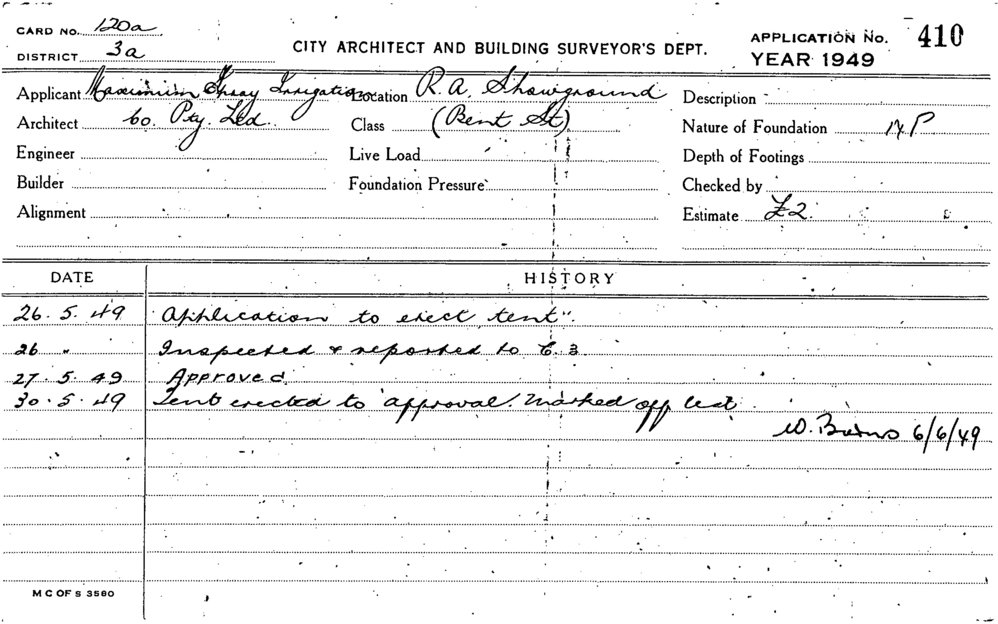 CARD NO. 120a
DISTRICT 3a
CITY ARCHITECT AND BUILDING SURVEYOR'S DEPT.
APPLICATION No. 410
YEAR 1949
Applicant Maximum Spray Irrigation Location R. A. Showground Description
Architect Co. Pty. Ltd. Class (Bent St) Nature of Foundation
Engineer Live Load Depth of Footings
Builder Foundation Pressure Checked by
Alignment Estimate £2
DATE HISTORY
26. 5. 49 Application to erect "tent".
26 " Inspected & reported to C. B
27. 5. 49 Approved.
30. 5. 49 Tent erected to approval. Marked off list
W. Burns 6/6/49
M C OF S 3580